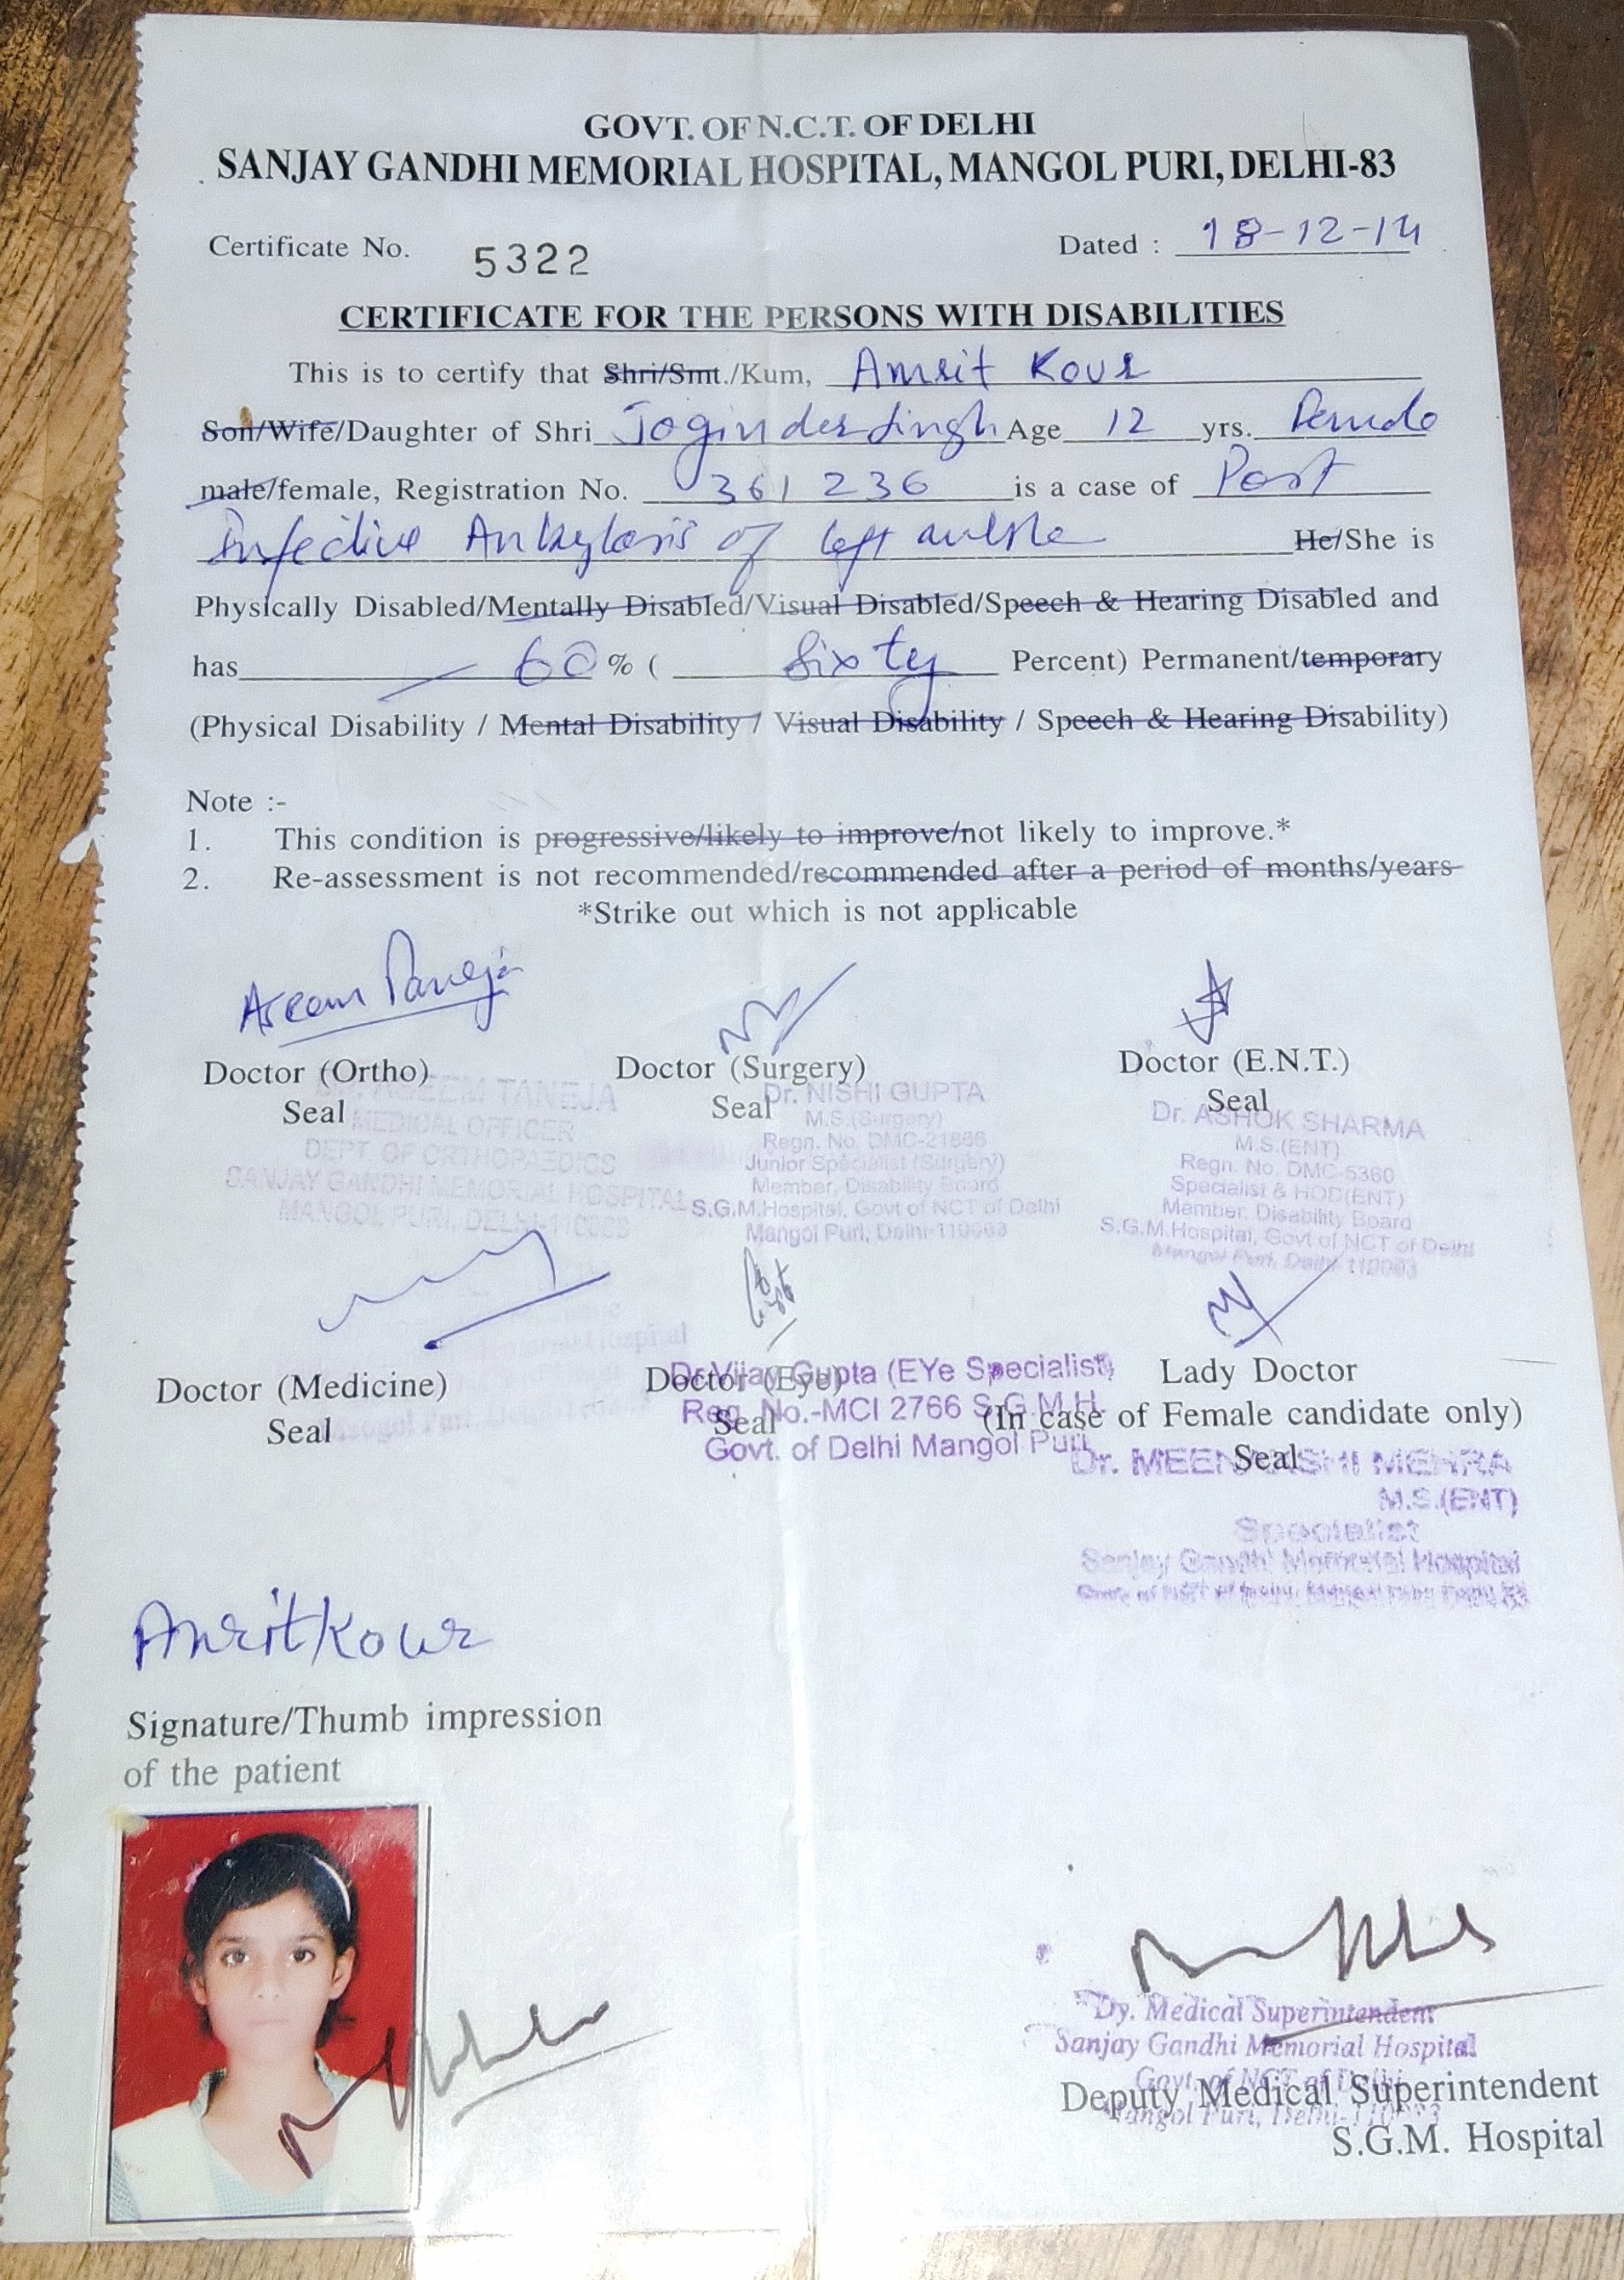 GOVT. OF N.C.T. OF DELHI
SANJAY GANDHI MEMORIAL HOSPITAL, MANGOL PURI, DELHI-83
Certificate No. 5322 Dated : 18-12-14
CERTIFICATE FOR THE PERSONS WITH DISABILITIES
This is to certify that Shri/Smt./Kum, Amrit Kour
Son/Wife/Daughter of Shri Joginder Singh Age 12 yrs. Female
male/female, Registration No. 361 236 is a case of Post
Infective Ankylosis of left ankle He/She is
Physically Disabled/Mentally Disabled/Visual Disabled/Speech & Hearing Disabled and
has 60 % ( Sixty Percent) Permanent/temporary
(Physical Disability / Mental Disability / Visual Disability / Speech & Hearing Disability)
Note :-
1. This condition is progressive/likely to improve/not likely to improve.*
2. Re-assessment is not recommended/recommended after a period of months/years
*Strike out which is not applicable
Aseem Taneja
Doctor (Ortho) Doctor (Surgery) Doctor (E.N.T.)
Seal Seal Seal
ASEEM TANEJA
MEDICAL OFFICER
DEPT. OF ORTHOPAEDICS
SANJAY GANDHI MEMORIAL HOSPITAL
MANGOL PURI, DELHI-110083
Dr. NISHI GUPTA
M.S.(Surgery)
Regn. No. DMC-21866
Junior Specialist (Surgery)
Member, Disability Board
S.G.M.Hospital, Govt of NCT of Delhi
Mangol Puri, Delhi-110083
Dr. ASHOK SHARMA
M.S.(ENT)
Regn. No. DMC-5360
Specialist & HOD(ENT)
Member. Disability Board
S.G.M.Hospital, Govt of NCT of Delhi
Mangol Puri, Delhi-110083
Doctor (Medicine) Doctor (Eye) Lady Doctor
Seal Seal (In case of Female candidate only)
Seal
Dr.Vijay Gupta (EYe Specialist)
Reg. No.-MCI 2766 S.G.M.H.
Govt. of Delhi Mangol Puri
Dr. MEENAKSHI MEHRA
M.S.(ENT)
Specialist
Sanjay Gandhi Memorial Hospital
Amrit Kour
Signature/Thumb impression
of the patient
Dy. Medical Superintendent
Sanjay Gandhi Memorial Hospital
Govt. of NCT of Delhi
Mangol Puri, Delhi-110083
Deputy Medical Superintendent
S.G.M. Hospital